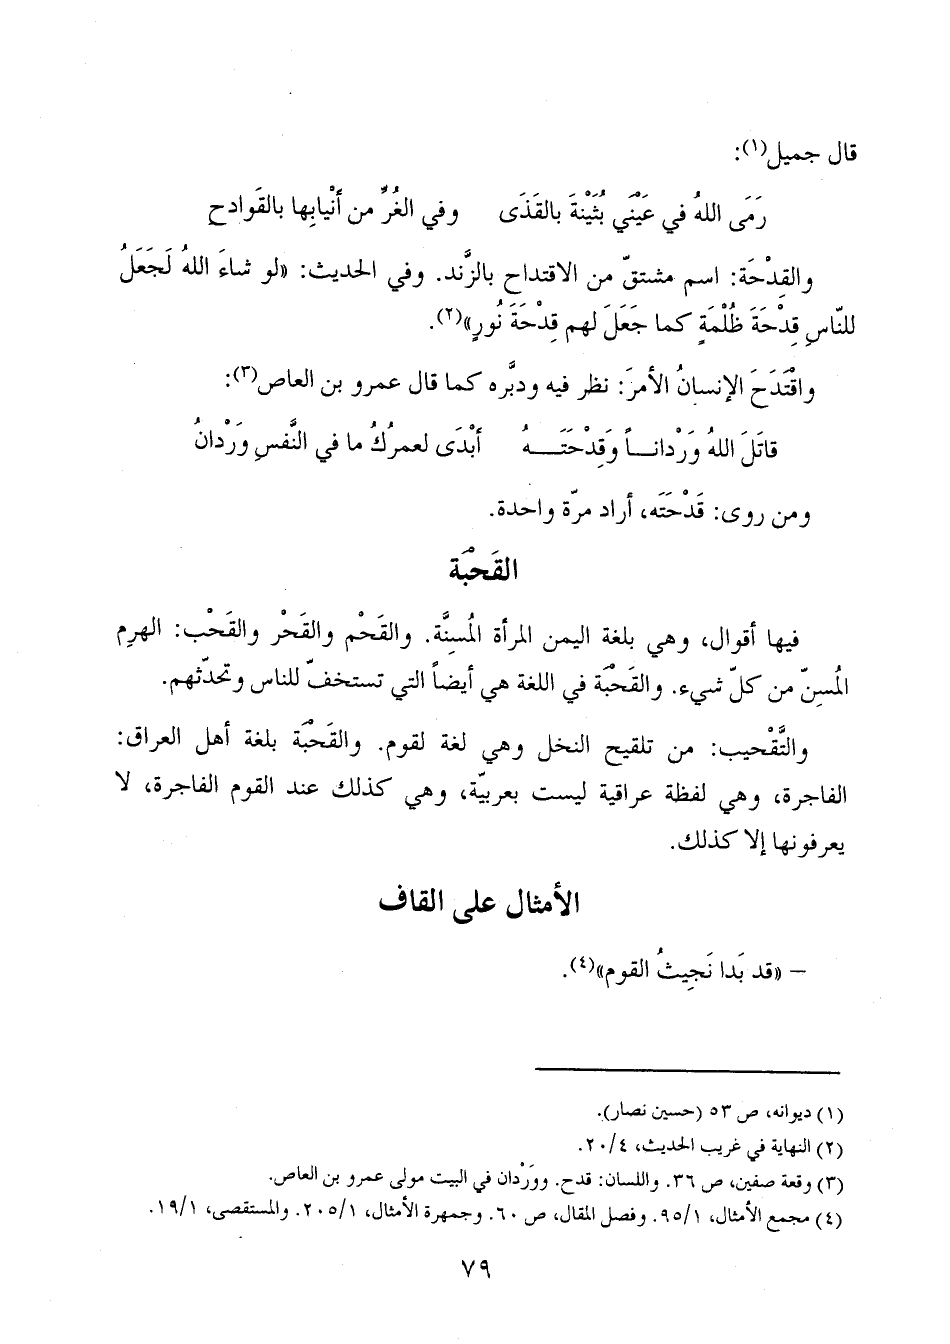 قال جميل(١):
رَمَى اللهُ في عَيْنَي بُثَيْنةَ بالقَذَى وفي الغُرِّ من أنْيابِها بالقَوادحِ
والقِدْحَة: اسم مشتقّ من الاقتداح بالزَّند. وفي الحديث: «لو شاءَ اللهُ لَجَعَلَ
للنّاسِ قِدْحَةَ ظُلْمَةٍ كما جَعَلَ لهم قِدْحَةَ نُورٍ»(٢).
واقْتَدَحَ الإنسانُ الأمرَ: نظر فيه ودبَّره كما قال عمرو بن العاص(٣):
قاتَلَ اللهُ وَرْدانــاً وَقِدْحَتَــــهُ أبْدَى لعمرُكُ ما في النَّفسِ وَرْدانُ
ومن روى: قَدْحَتَه، أراد مرّة واحدة.
القَحْبَة
فيها أقوال، وهي بلغة اليمن المرأة المُسِنَّة. والقَحْم والقَحْر والقَحْب: الهرِم
المُسِنّ من كلّ شيء. والقَحْبَة في اللغة هي أيضاً التي تستخفّ للناس وتحدّثهم.
والتَّقْحيب: من تلقيح النخل وهي لغة لقوم. والقَحْبَة بلغة أهل العراق:
الفاجرة، وهي لفظة عراقية ليست بعربيّة، وهي كذلك عند القوم الفاجرة، لا
يعرفونها إلا كذلك.
الأمثال على القاف
– «قد بَدا نَجيثُ القوم»(٤).
(١) ديوانه، ص ٥٣ (حسين نصار).
(٢) النهاية في غريب الحديث، ٢٠/٤.
(٣) وقعة صفين، ص ٣٦. واللسان: قدح. ووَرْدان في البيت مولى عمرو بن العاص.
(٤) مجمع الأمثال، ٩٥/١. وفصل المقال، ص ٦٠. وجمهرة الأمثال، ٢٠٥/١. والمستقصى، ١٩/١.
٧٩